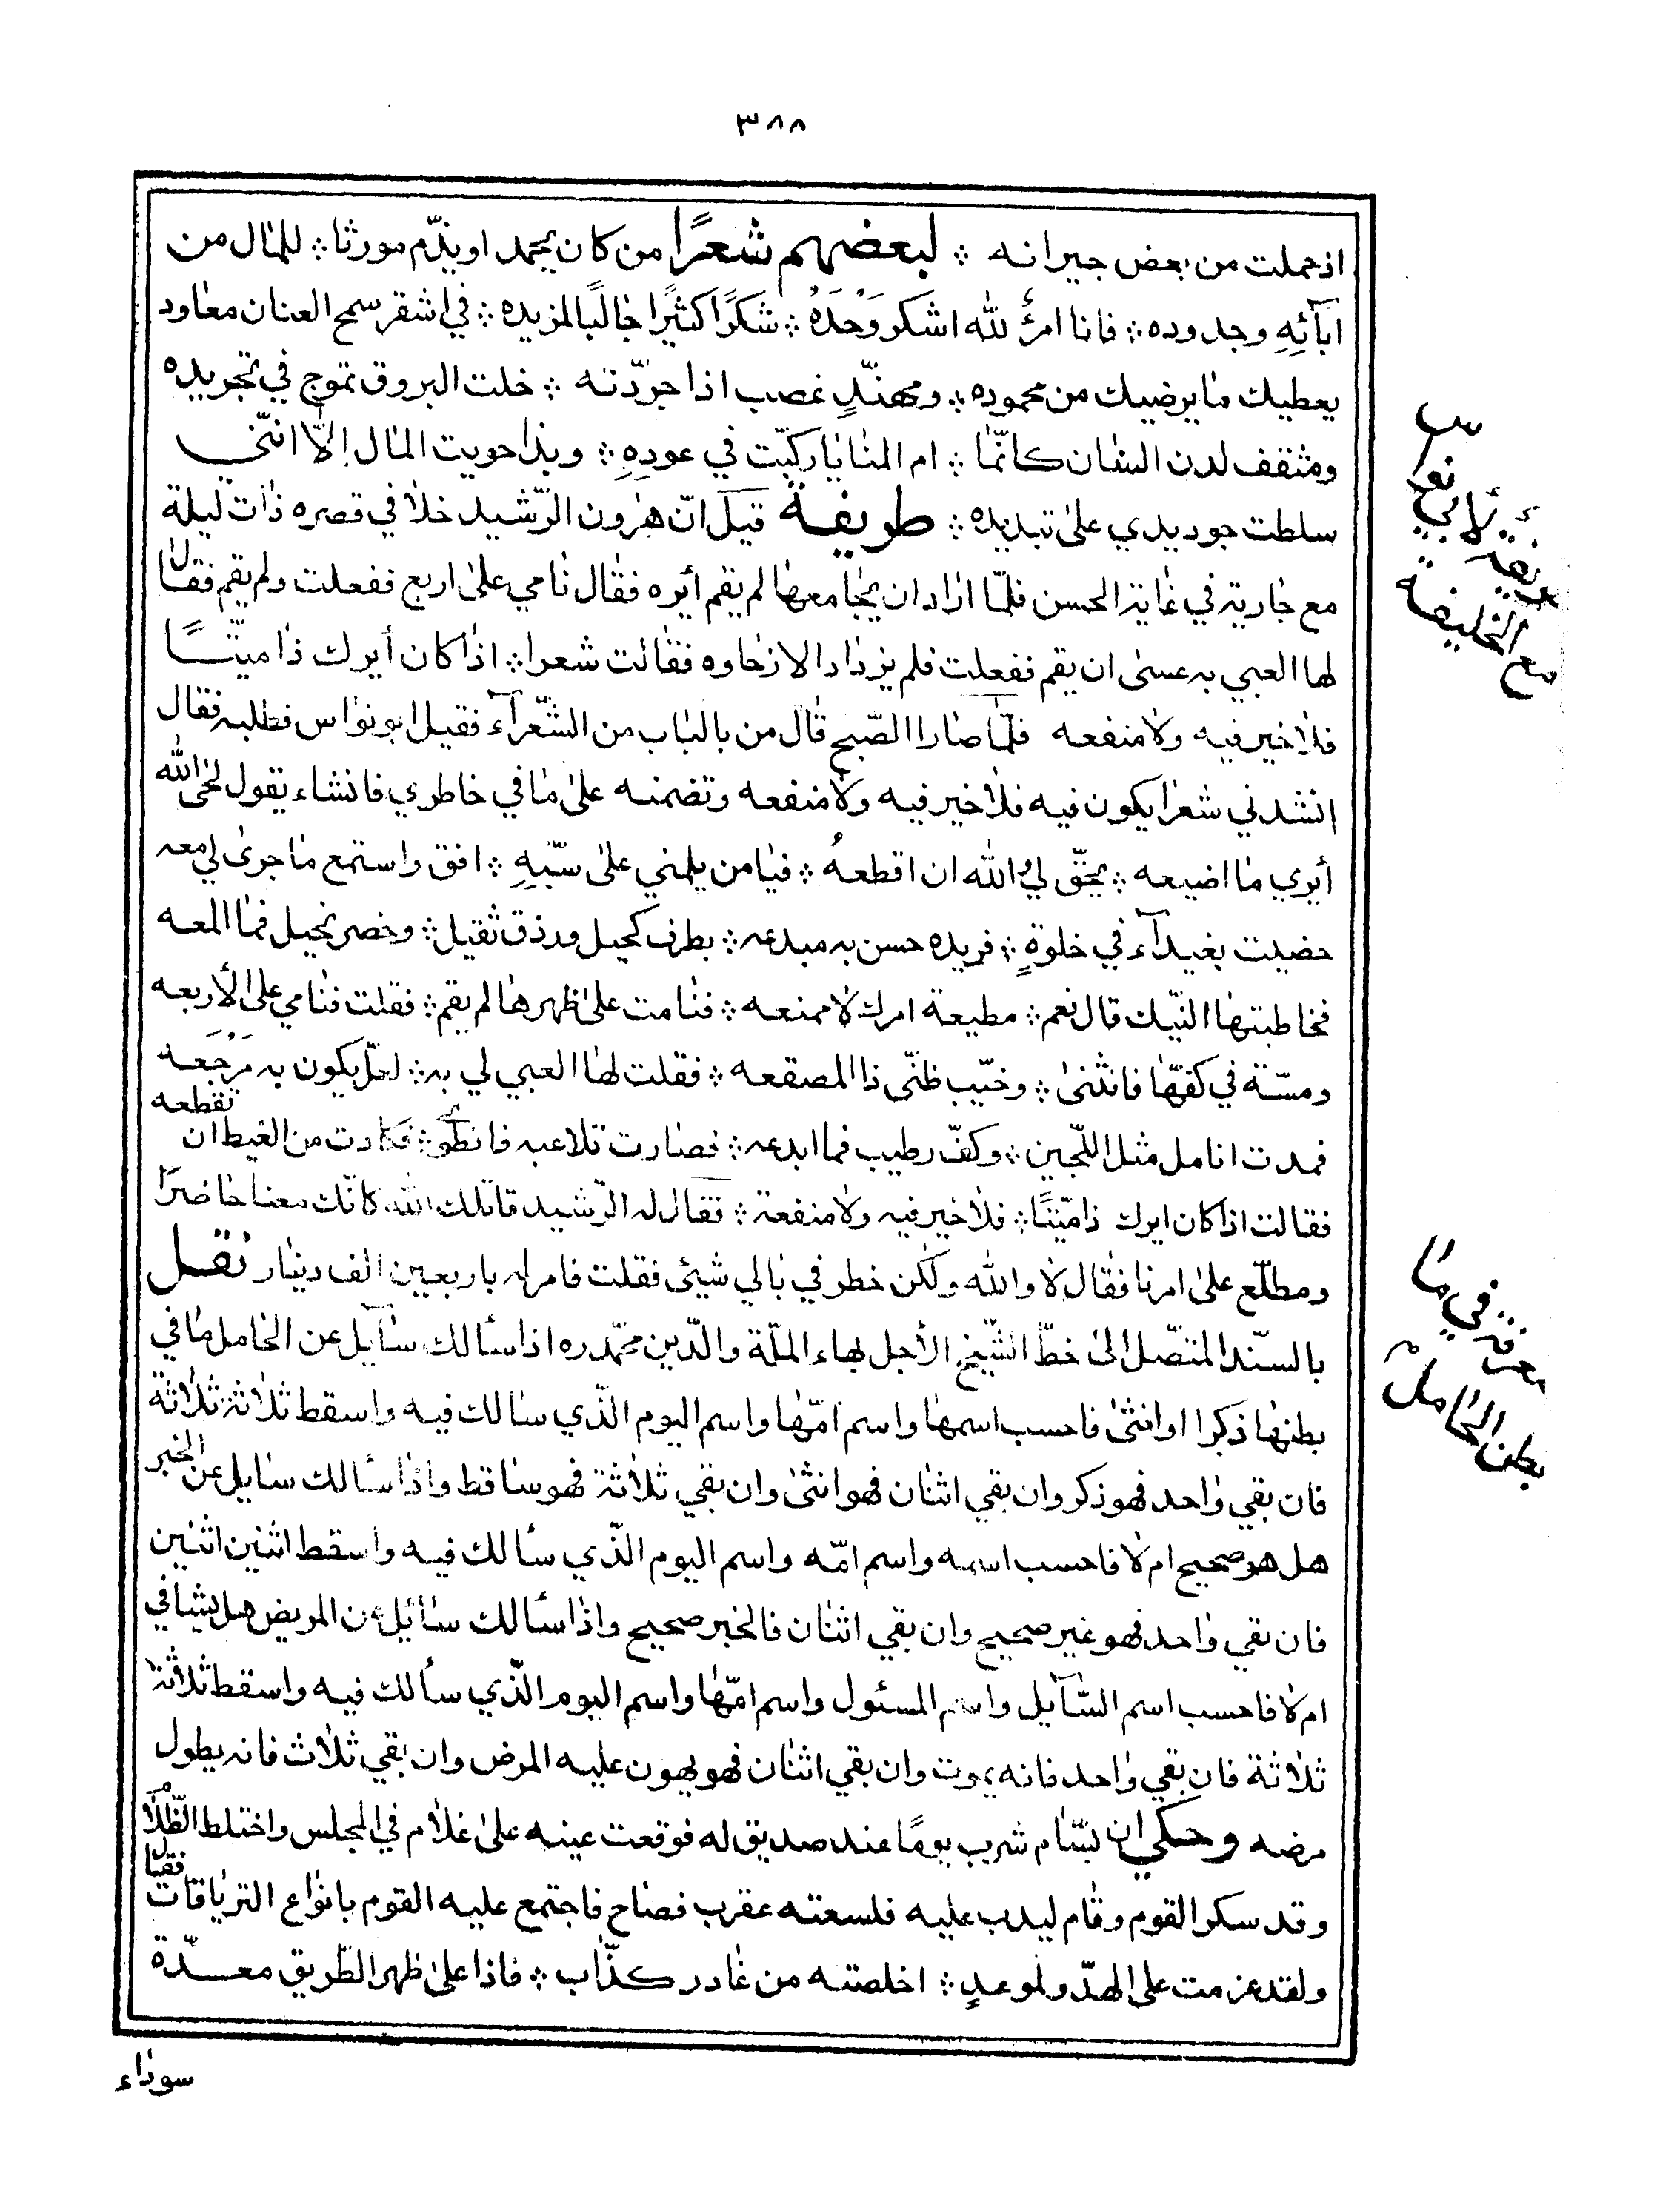 ٣٨٨
اذحملت من بعض جيرانه ؞ لبعضهم شعرًا من كان يحمد او يذّم مورثا ؞ للمال من
آبآئِهِ وجدوده ؞ فانا امرئٌ لله اشكر وَحْدَهُ ؞ شكرًا كثيرًا جالبًا لمزيده ؞ في اشقر سمح العنان معاود
يعطيك ما يرضيك من مجموده ؞ ومهنّدٍ غصب اذا جرّدته ؞ خلت البروق تموج في تجريده
ومثقف لدن السنان كانّما ؞ ام المنايا ركبّت في عودِهِ ؞ وبذا حويت المال إلّا انّني
سلطت جود يدي على تبديده ؞ طريفة قيل انّ هرون الرّشيد خلا في قصره ذات ليلة
مع جارية في غاية الحسن فلمّا اراد ان يجامعها لم يقم أيره فقال نامي على اربع ففعلت ولم يقم فقال
لها العبي به عسى ان يقم ففعلت فلم يزداد الا زخاوه فقالت شعرا ؞ اذا كان أيرك ذا ميّتًا
فلا خير فيه ولا منفعه فلمّا صار الصّبح قال من بالباب من الشّعرآء فقيل ابو نواس فطلبه فقال
انشدني شعرا يكون فيه فلا خير فيه ولا منفعه وتضمنه على ما في خاطري فانشاء يقول لحى الله
أيري ما اضيعه ؞ يحقّ لي والله ان اقطعهُ ؞ فيا من يلمني على سبّهِ ؞ افق واستمع ما جرى لي معه
حضيت بغيدآء في خلوةٍ ؞ فريده حسن به مبدعه ؞ بطرف كحيل وردف ثقيل ؞ وخصر نحيل فما المعه
فخاطبتها النّيك قال نعم ؞ مطيعة امرك لا ممنعه ؞ فنامت على ظهرها لم يقم ؞ فقلت فنامي على الأربعه
ومسّته في كفهّا فانثنى ؞ وخيّب ظنّي ذا المصقعه ؞ فقلت لها العبي لي به ؞ لعلّ يكون به مَرْجَعه
فمدت انامل مثل اللّجين ؞ وكفّ رطيب فما ابدعه ؞ فصارت تلاعبه فانطوى ؞ فكادت من الغيظ ان تقطعه
فقالت اذا كان ايرك ذا ميّتًا ؞ فلا خير فيه ولا منفعة ؞ فقال له الرّشيد قاتلك الله كانّك معنا حاضرًا
ومطلّع على امرنا فقال لا والله ولكن خطر في بالي شيئ فقلت فامر له باربعين الف دينار نقل
بالسنّد المتصّل الى خطّ الشّيخ الأجل بهاء الملّة والدّين محمّد ره اذا سألك سآيل عن الحامل ما في
بطنها ذكرا او انثى فاحسب اسمها واسم امّها واسم اليوم الّذي سألك فيه واسقط ثلاثة ثلاثة
فان بقي واحد فهو ذكر وان بقي اثنان فهو انثى وان بقي ثلاثة فهو ساقط واذا سألك سايل عن الخبر
هل هو صحيح ام لا فاحسب اسمه واسم امّه واسم اليوم الّذي سألك فيه واسقط اثنين اثنين
فان بقي واحد فهو غير صحيح وان بقي اثنان فالخبر صحيح واذا سألك سائيل عن المريض هل يشافي
ام لا فاحسب اسم السّآيل واسم المسئول واسم امّها واسم اليوم الّذي سألك فيه واسقط ثلاثة
ثلاثة فان بقي واحد فانه يموت وان بقي اثنان فهو يهون عليه المرض وان بقي ثلاث فانه يطول
مرضه وحكي ان لبسّام شرب يومًا عند صديق له فوقعت عينه على غلام في المجلس واختلط الظّلام
وقد سكر القوم وقام ليدب عليه فلسعته عقرب فصاح فاجتمع عليه القوم بانواع الترياقات فقال
ولقد عزمت على الهدّو لموعدٍ ؞ اخلصته من غادر كذّاب ؞ فاذا على ظهر الطّريق معدّة
سوداء
طريفة لأبي نواس
مع الخليفة
معرفة في ما
بطن الحامل